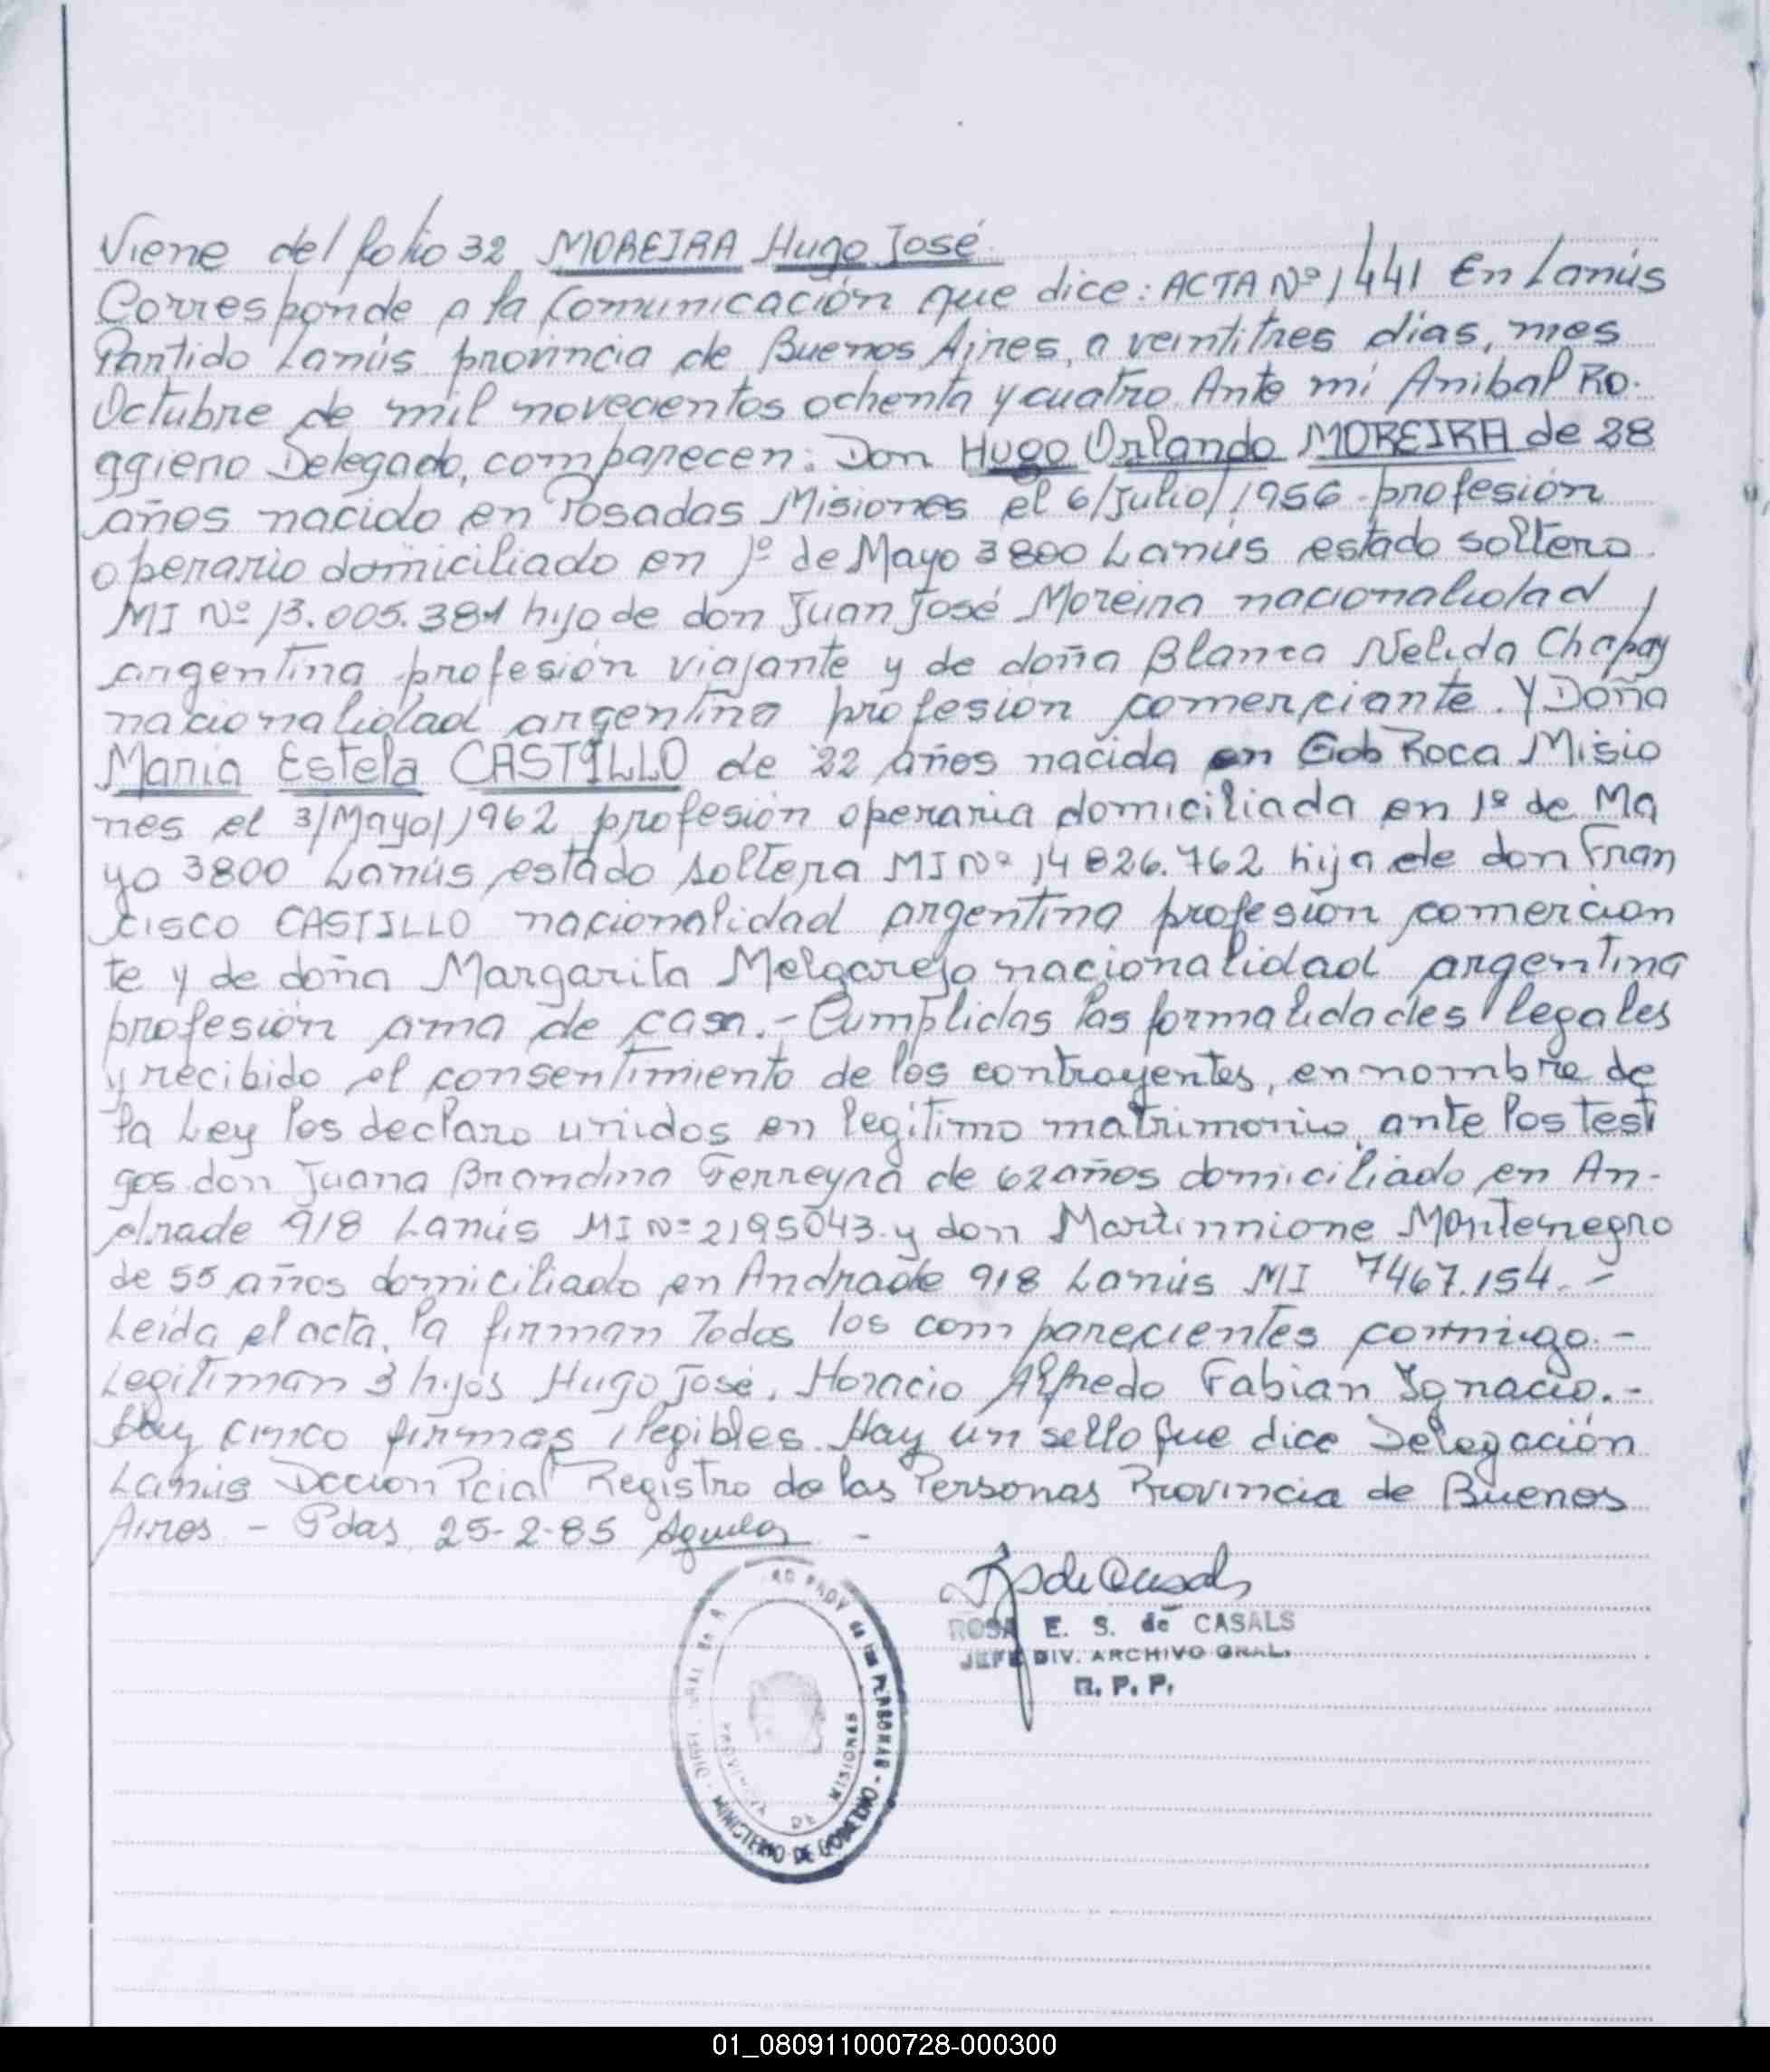 Viene del folio 32 MOREIRA Hugo José.
Corresponde a la Comunicación que dice: ACTA Nº 1441 En Lanús
Partido Lanús provincia de Buenos Aires, a veintitres dias, mes
Octubre de mil novecientos ochenta y cuatro. Ante mi Anibal Ro-
ggiero Delegado, comparecen: Don Hugo Orlando MOREIRA de 28
años nacido en Posadas Misiones el 6/Julio/1956 profesión
operario domiciliado en 1º de Mayo 3800 Lanús estado soltero
MI Nº 13.005.381 hijo de don Juan José Moreira nacionalidad
argentina profesión viajante y de doña Blanca Nelida Chapay
nacionalidad argentina profesión comerciante. Y Doña
Maria Estela CASTILLO de 22 años nacida en Gob Roca Misio
nes el 3/Mayo/1962 profesión operaria domiciliada en 1º de Ma
yo 3800 Lanús estado soltera MI Nº 14 826.762 hija de don Fran
cisco CASTILLO nacionalidad argentina profesion comercian
te y de doña Margarita Melgarejo nacionalidad argentina
profesión ama de casa.- Cumplidas las formalidades legales
y recibido el consentimiento de los contrayentes, en nombre de
la Ley los declaro unidos en legítimo matrimonio, ante los testi
gos don Juana Brandina Ferreyra de 62 años domiciliado en An-
drade 918 Lanús MI Nº 2195043 y don Martinnione Montenegro
de 55 años domiciliado en Andrade 918 Lanús MI 7467.154.-
Leída el acta, la firman Todos los comparecientes conmigo.-
Legitiman 3 hijos Hugo José, Horacio Alfredo Fabian Ignacio.-
Hay cinco firmas ilegibles. Hay un sello que dice Delegación
Lanús Dccion Pcial Registro de las Personas Provincia de Buenos
Aires - Pdas 25-2-85
ROSA E. S. de CASALS
JEFE DIV. ARCHIVO GRAL.
R. P. P.
PROV de las PERSONAS - MINISTERIO DE GOBIERNO
PROVINCIA DE MISIONES
01_080911000728-000300